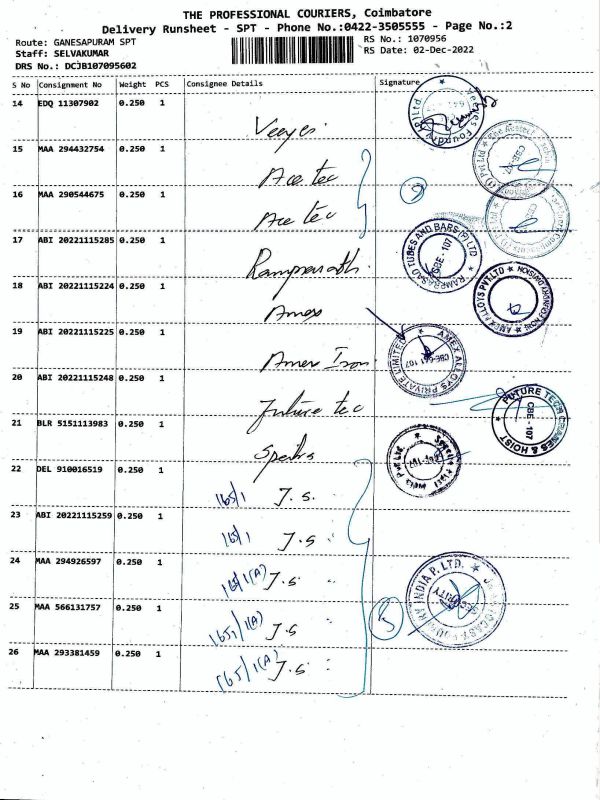 THE PROFESSIONAL COURIERS, Coimbatore
Delivery Runsheet - SPT - Phone No.:0422-3505555 - Page No.:2
Route: GANESAPURAM SPT
Staff: SELVAKUMAR
DRS No.: DCJB107095602
RS No.: 1070956
RS Date: 02-Dec-2022
S No Consignment No Weight PCS Consignee Details Signature
14 EDQ 11307902 0.250 1
15 MAA 294432754 0.250 1 Ace tec
16 MAA 290544675 0.250 1 Ace tec
17 ABI 20221115285 0.250 1
18 ABI 20221115224 0.250 1 Amex
19 ABI 20221115225 0.250 1 Amex Iron
20 ABI 20221115248 0.250 1 Future tec
21 BLR 5151113983 0.250 1
22 DEL 910016519 0.250 1 165/1 J.S.
23 ABI 20221115259 0.250 1 165/1 J.S
24 MAA 294926597 0.250 1 165/1(A) J.S
25 MAA 566131757 0.250 1 165/1(A) J.S
26 MAA 293381459 0.250 1 165/1(A) J.S
RAMPRASAD TUBES AND BARS (P) LTD
CBE - 107
AMEX ALLOYS PVT.LTD
AMEX ALLOYS PRIVATE LIMITED
CBE-641 107
FUTURE TECH CRANES & HOIST
CBE - 107
INDIA P. LTD.
SECURITY